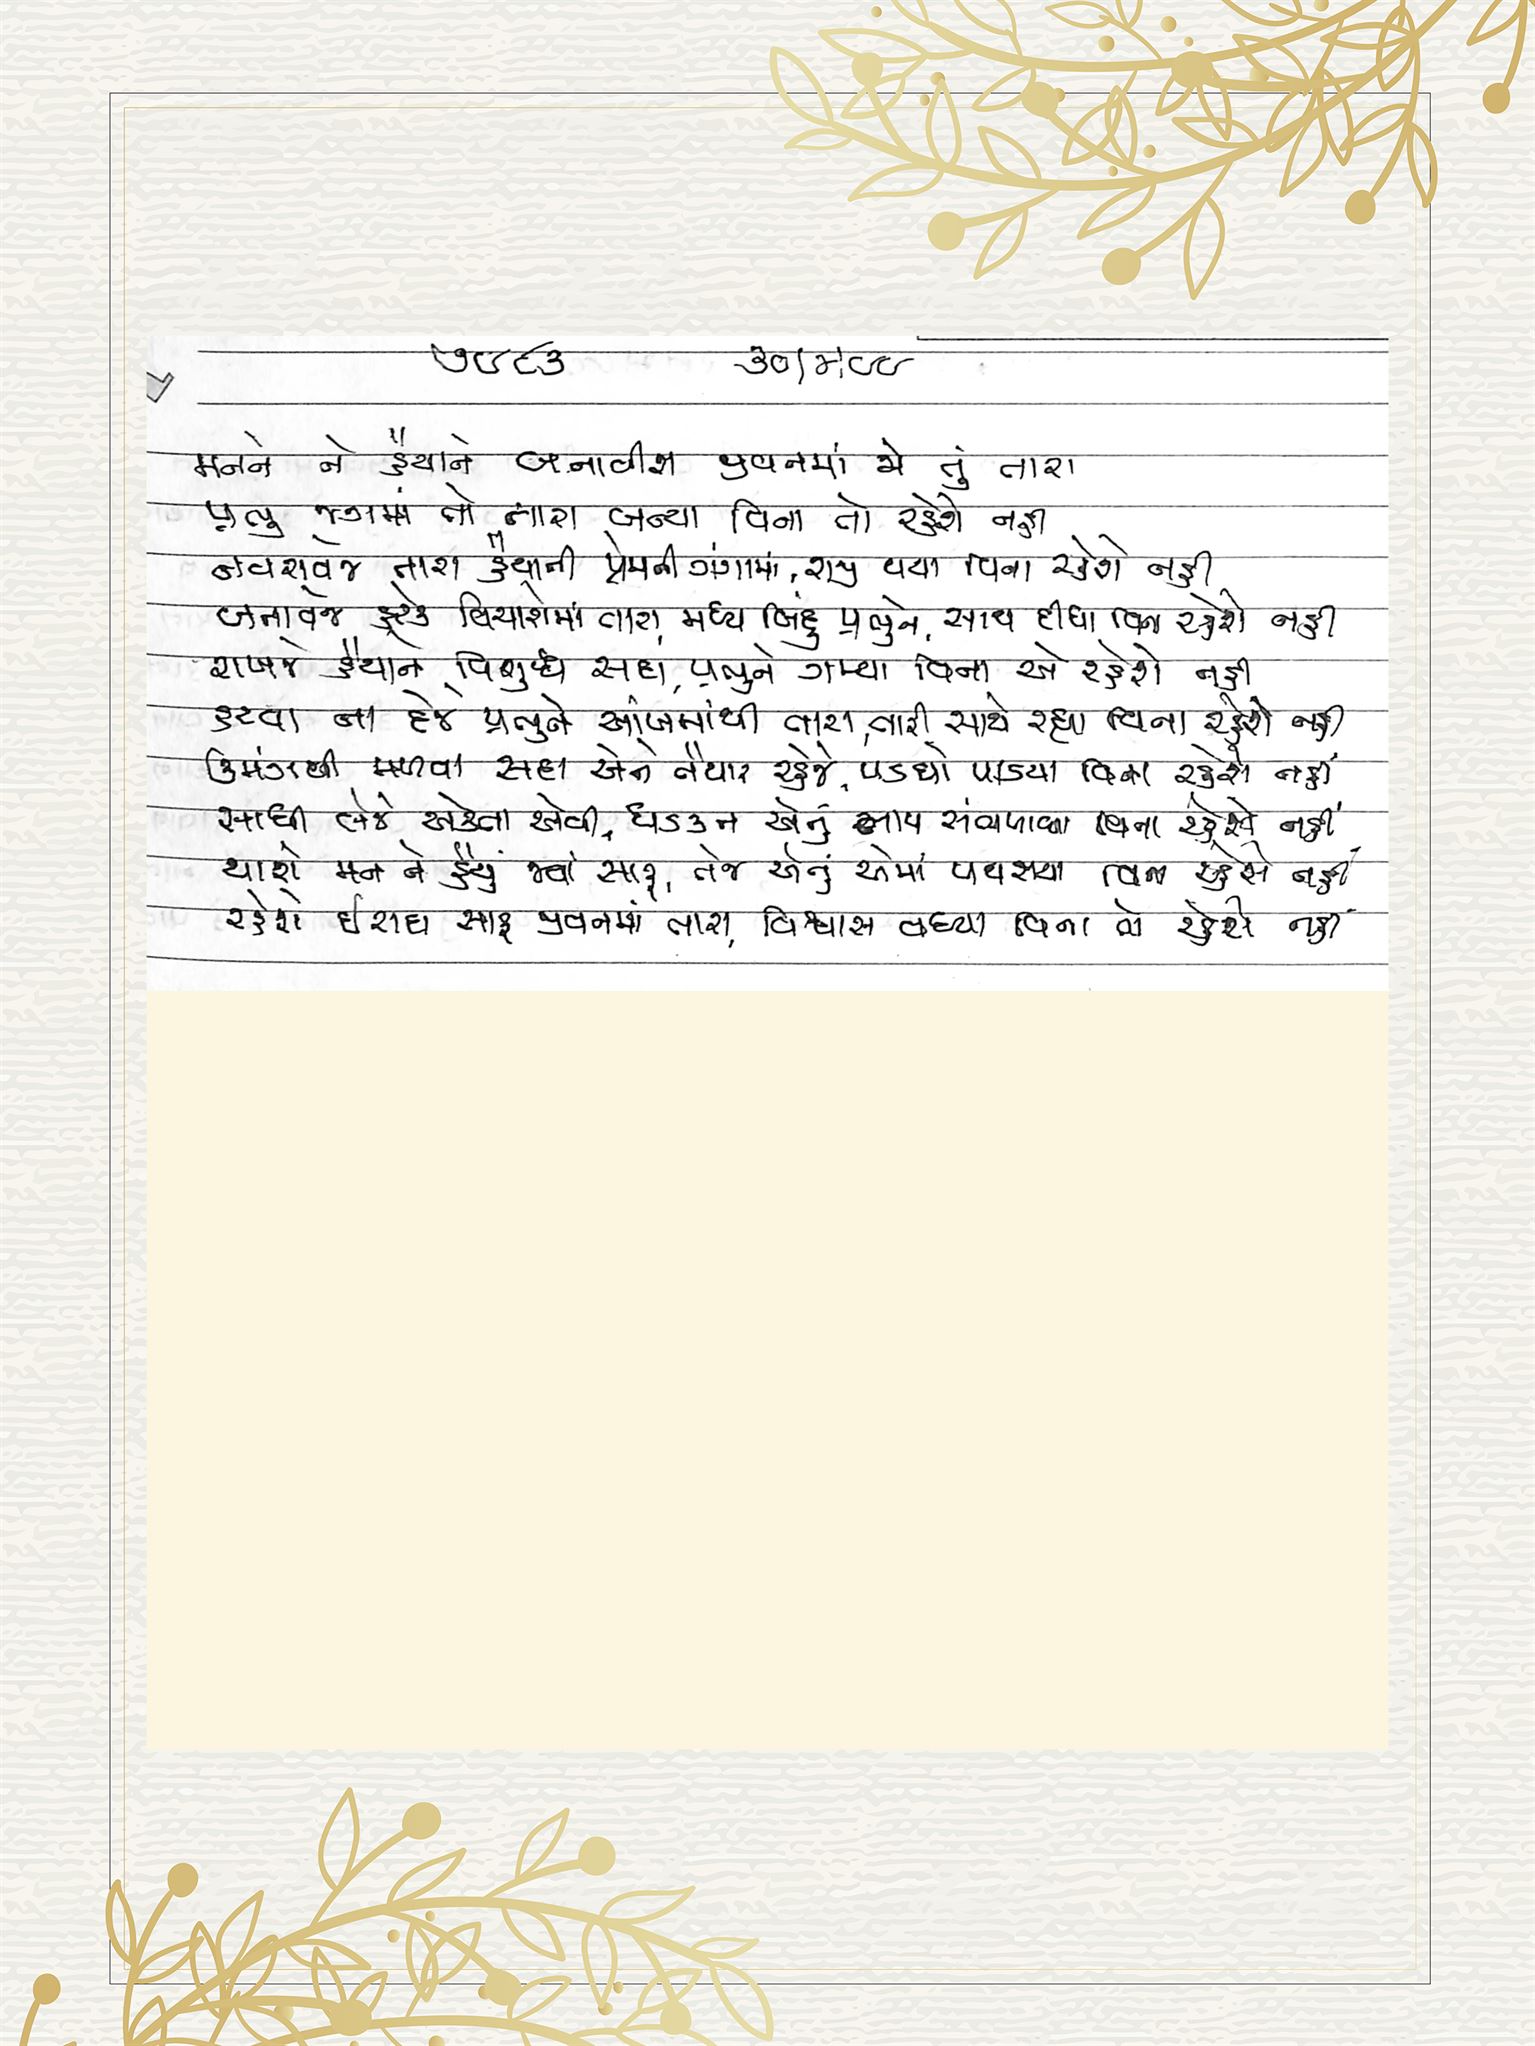 ૭૯૮૩ ૩૦/૪/૯૯
મનને ને હૈયાને બનાવીશ જીવનમાં જો તું તારા
પ્રભુ જગમાં તો તારા બન્યા વિના તો રહેશે નહીં
નવરાવજે તારા હૈયાની પ્રેમની ગંગામાં, રાજી થયા વિના રહેશે નહીં
બનાવજે હરેક વિચારોમાં તારા, મધ્ય બિંદુ પ્રભુને, સાથ દીધા વિના રહેશે નહીં
રાખજે હૈયાને વિશુધ્ધ સદા, પ્રભુને ગમ્યા વિના એ રહેશે નહીં
હટવા ના દેજે પ્રભુને આંખમાંથી તારા, તારી સાથે રહ્યા વિના રહેશે નહીં
ઉમંગથી મળવા સદા એને તૈયાર રહેજે, પડઘો પાડયા વિના રહેશે નહીં
સાધી લેજે એકતા એવી, ધડકન એનું નામ સંભળાવ્યા વિના રહેશે નહીં
થાશે મન ને હૈયું જ્યાં સાફ, તેજ એનું એમાં પથરાયા વિના રહેશે નહીં
રહેશે ઈરાદા સાફ જીવનમાં તારા, વિશ્વાસ વધ્યા વિના તો રહેશે નહીં